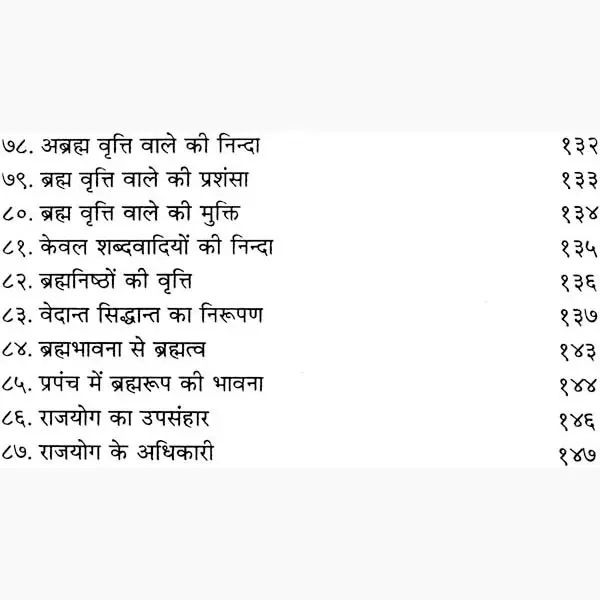 ७८. अब्रह्म वृत्ति वाले की निन्दा १३२
७९. ब्रह्म वृत्ति वाले की प्रशंसा १३३
८०. ब्रह्म वृत्ति वाले की मुक्ति १३४
८१. केवल शब्दवादियों की निन्दा १३५
८२. ब्रह्मनिष्ठों की वृत्ति १३६
८३. वेदान्त सिद्धान्त का निरूपण १३७
८४. ब्रह्मभावना से ब्रह्मत्व १४३
८५. प्रपंच में ब्रह्मरूप की भावना १४४
८६. राजयोग का उपसंहार १४६
८७. राजयोग के अधिकारी १४७